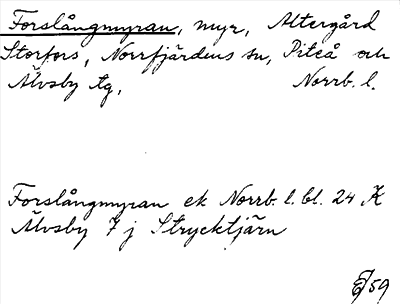 Forslångmyran, myr, Altergård
Storfors, Norrfjärdens sn, Piteå och
Älvsby tg, Norrb. l.
Forslångmyran ek Norrb. l. bl. 24 K
Älvsby 7 j Strycktjärn
59